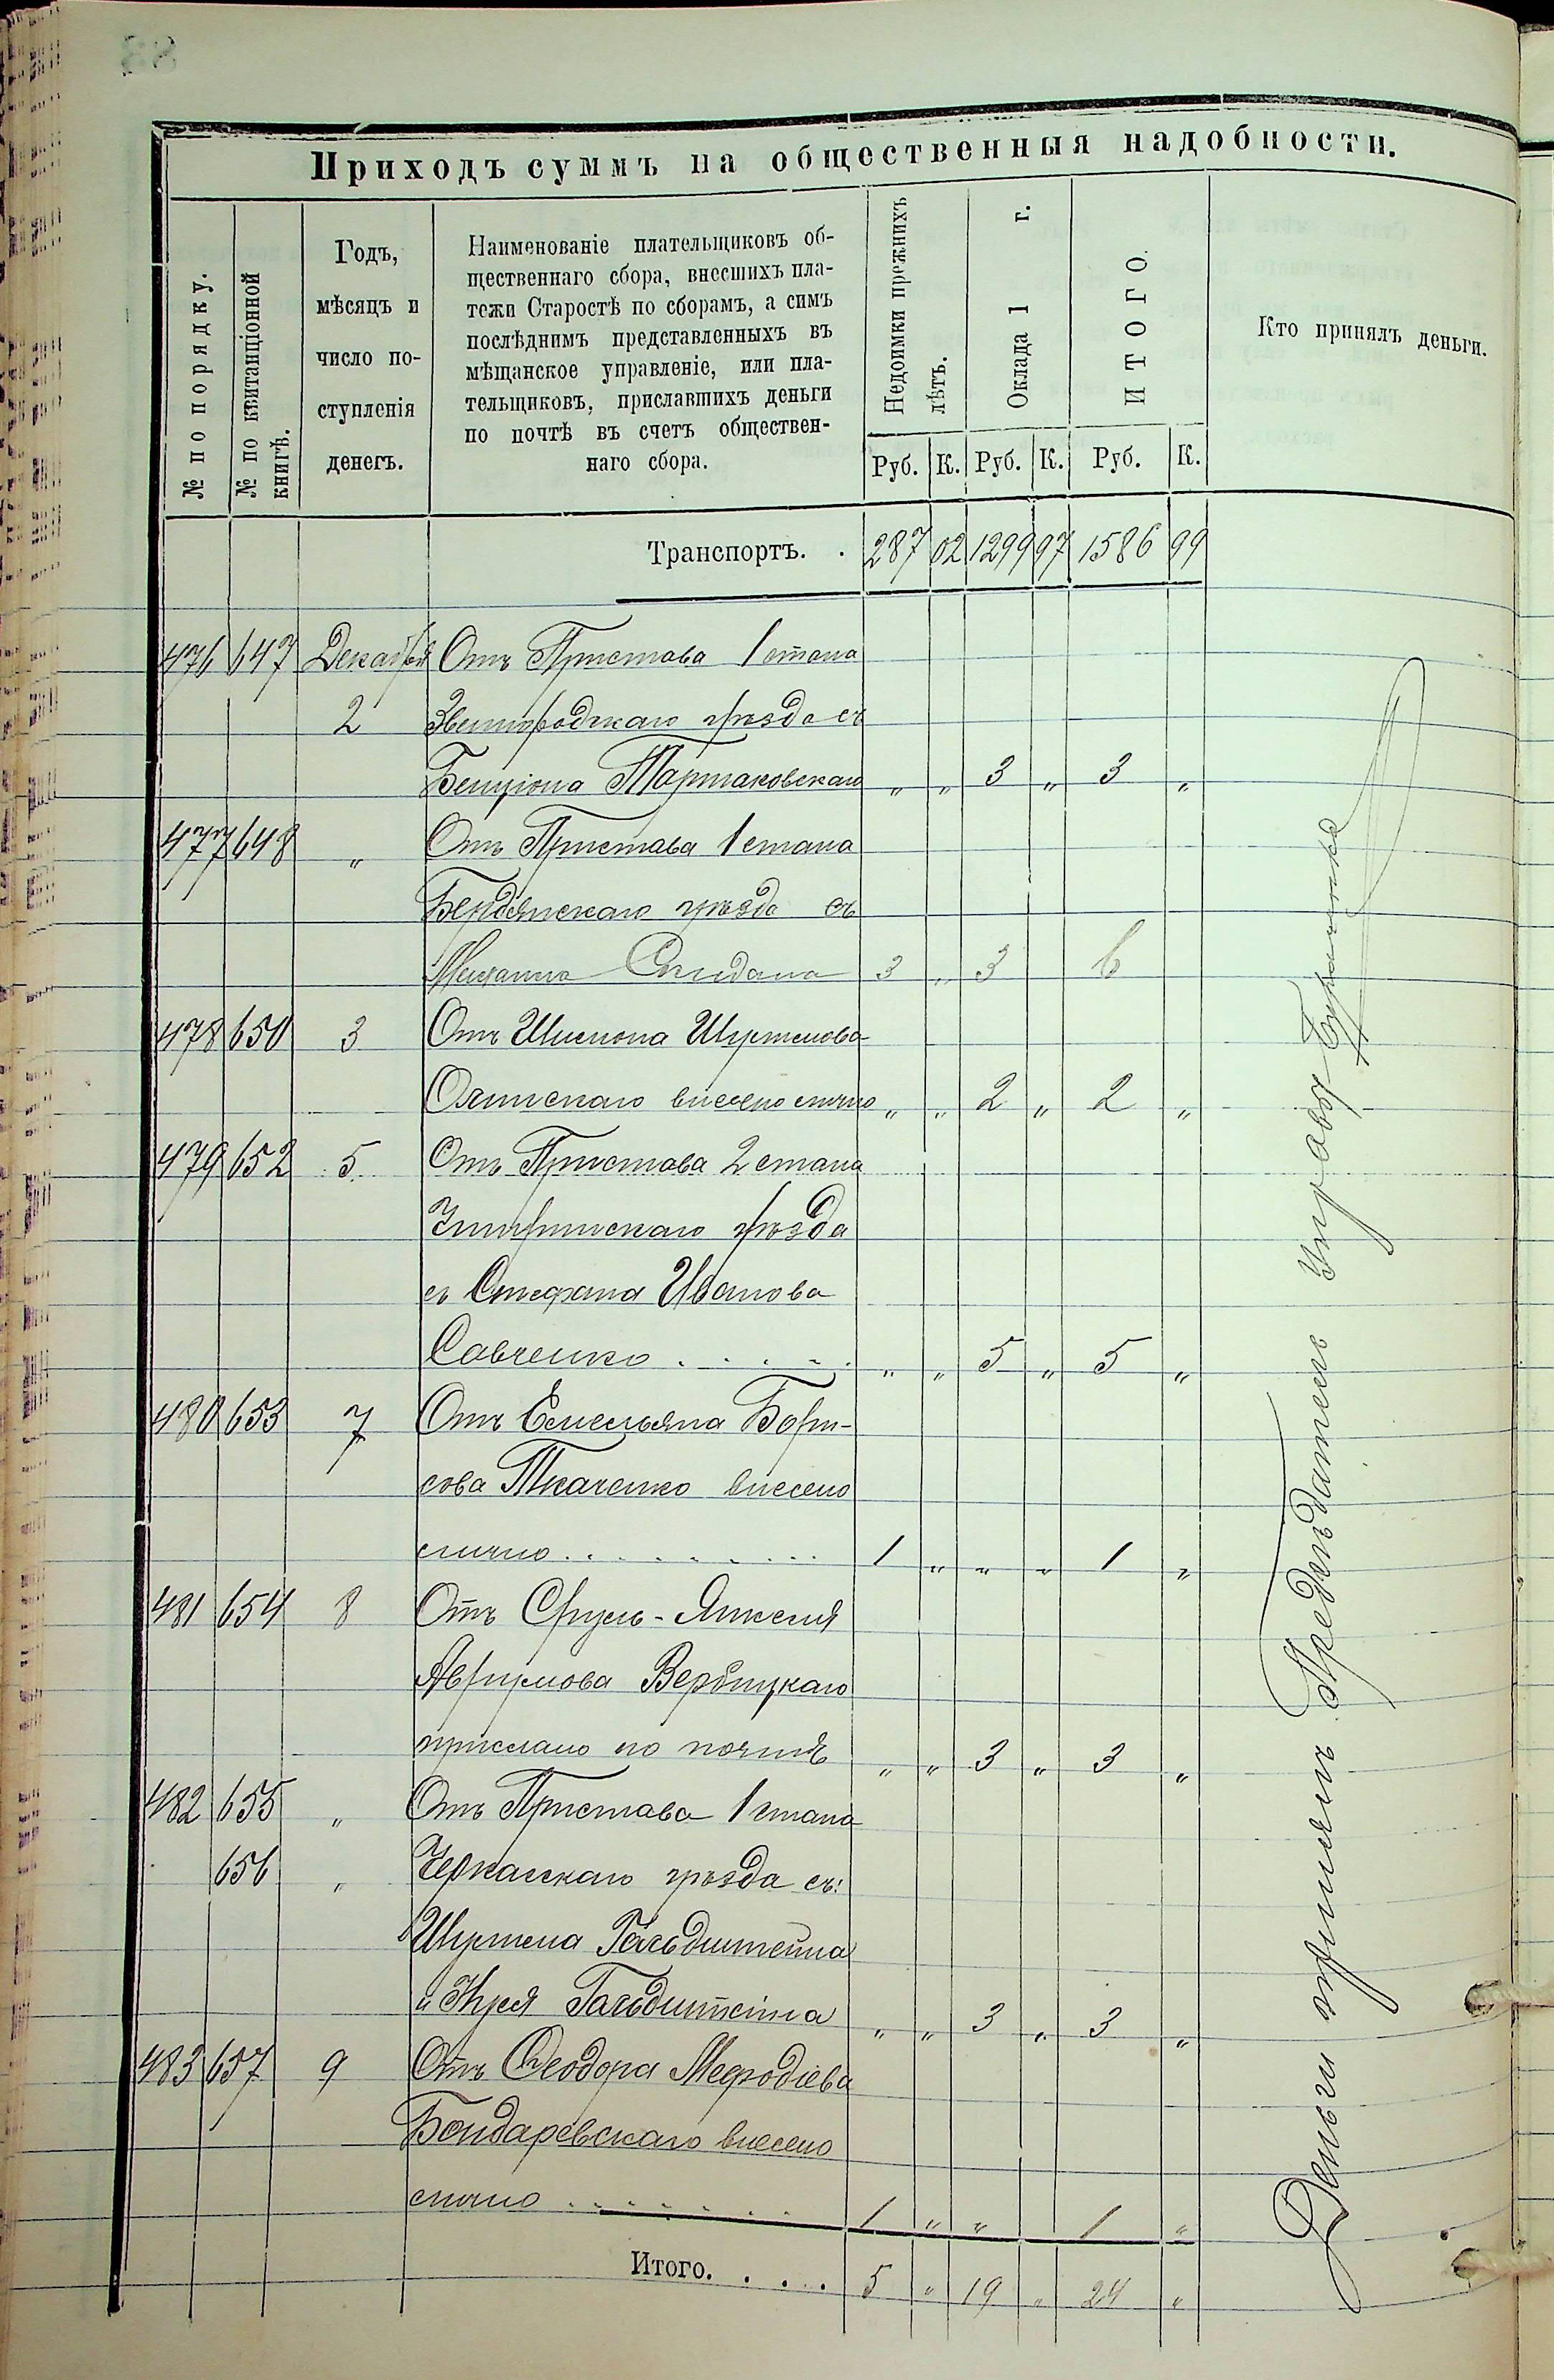 83
Приходъ суммъ на общественныя надобности.
№ по порядку.
№ по квитанціонной книгѣ.
Годъ,
мѣсяцъ и
число по-
ступленія
денегъ.
Наименованіе плательщиковъ об-
щественнаго сбора, внесшихъ пла-
тежи Старостѣ по сборамъ, а симъ
послѣднимъ представленныхъ въ
мѣщанское управленіе, или пла-
тельщиковъ, приславшихъ деньги
по почтѣ въ счетъ обществен-
наго сбора.
Недоимки прежнихъ лѣтъ.
Оклада 1 г.
ИТОГО.
Кто принялъ деньги.
Руб. К. Руб. К. Руб. К.
Транспортъ. . 287 02 1299 97 1586 99
476 647 Декабря Отъ Пристава 1 стана
2 Звенигородскаго уѣзда съ
Бенціона Тартаковскаго " " 3 " 3 "
477 648 " Отъ Пристава 1 стана
Бердянскаго уѣзда съ
3 " 3 6
478 650 3 Отъ Шимона
внесено лично " " 2 " 2 "
479 652 5 Отъ Пристава 2 стана
Чигиринскаго уѣзда
съ Стефана Иванова
Савченко . . . . . " " 5 " 5 "
480 653 7 Отъ Емельяна Бори-
сова Ткаченко внесено
лично . . . . . . . . . 1 " " " 1 "
481 654 8 Отъ Сруль-Янкеля
Аврумова Вербицкаго
прислано по почтѣ " " 3 " 3 "
482 655 " Отъ Пристава 1 стана
656 " Черкасскаго уѣзда съ:
Гольдштейна
и Гольдштейна " " 3 " 3 "
483 657 9 Отъ Ѳеодора Мефодіева
Бондаревскаго внесено
лично . . . . . . . 1 " " 1 "
Итого. . . . 5 " 19 " 24 "
Деньги принялъ Предсѣдатель Управы